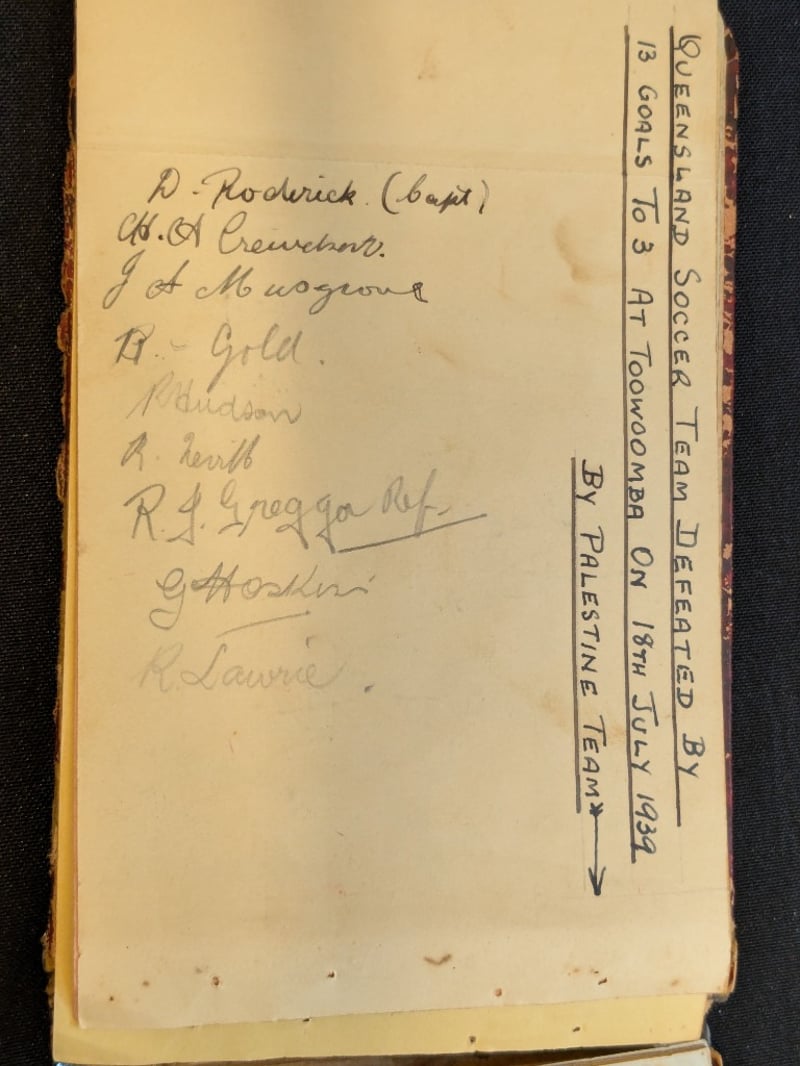 QUEENSLAND SOCCER TEAM DEFEATED BY
13 GOALS TO 3 AT TOOWOOMBA ON 18TH JULY 1939
BY PALESTINE TEAM
D. Roderick (Capt)
J A Musgrove
R. Gold.
R Hudson
R.
R. J. Greggor Ref.
G Hoskins
R. Lawrie.